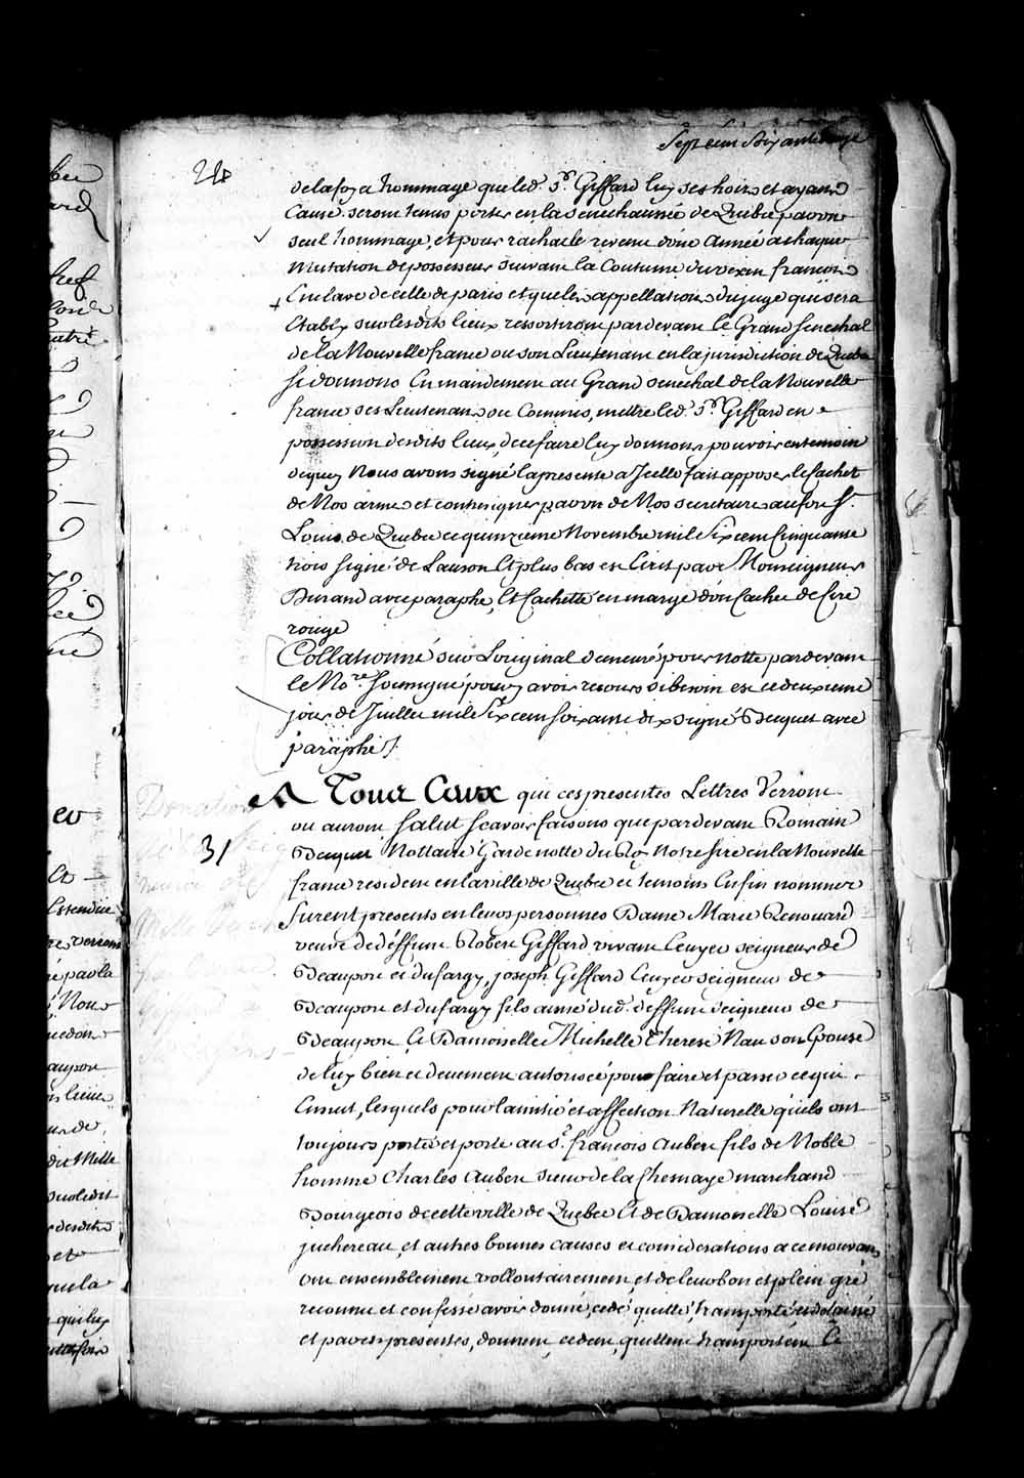 Sept cens Soixante
24
delafoy et hommage queled. Sr. Giffard luy ses hoirs et ayans
Cause seront tenus porter en la Senechaussée de Quebec par un
seul hommage, et pour rachat le revenu d'une Année a chaque
Mutation de possesseur suivant la Coutume du vexin francois
Enclavé de celle de paris et que les appellations du juge qui sera
Etably sur lesdits lieux ressortiront pardevant le Grand Senechal
de la Nouvelle france ou son Lieutenant en la jurisdiction de Quebec
Sy donnons En mandement au Grand Senechal de la Nouvelle
france ses Lieutenans ou Commis, mettre led. Sr. Giffard en
possession desdits lieux, de ce faire luy donnons pouvoir en temoin
dequoy Nous avons signé la presente a Icelle fait apposer le Cachet
de Nos armes et contresigner par un de Nos Secretaires au fort St.
Louis de Quebec ce quinzieme Novembre mil Six cens Cinquante
trois Signé de Lauson Et plus bas est Ecrit par Monseigneur
Durand avec paraphe, Et Cachetté en marge d'un Cachet de Cire
rouge
Collationné sur L'original demeuré pour notte pardevant
le No.re Soussigné pour y avoir recours si besoin est ce deuxieme
jour de Juillet mil Six cens soixante dix signé Becquet avec
paraphe /.
A Tous Ceux qui ces presentes Lettres Verront
31
ou auront Salut Scavoir faisons que pardevant Romain
Becquet Nottaire Gardenotte du Roy Notre Sire en la Nouvelle
france resident en la ville de Quebec et temoins Enfin nommez
furent presents en leurs personnes Dame Marie Renouard
veuve de deffunt Robert Giffard vivant Ecuyer seigneur de
Beauport et dufargy, Joseph Giffard Ecuyer seigneur de
Beauport et dufargy fils ainé dud. deffunt seigneur de
Beauport, Et Damoiselle Michelle Therese Nau son Epouse
de luy bien et deuement autorisée pour faire et passer ce qui
Ensuit, lesquels pour l'amitié et affection Naturelle qu'ils ont
toujours porté et porte au Sr. francois Aubert fils de Noble
homme Charles Aubert sieur de la Chesnaye marchand
Bourgeois de cette ville de Quebec Et de Damoiselle Louise
juchereau, et autres bonnes causes et considerations a ce mouvans
ont ensemblement vollontairement, et de leur bon et plein gré
reconnu et confessé avoir donné, cedé, quitté, transporté, et delaissé
et par ces presentes, donnent, cedent, quittent transportent Et